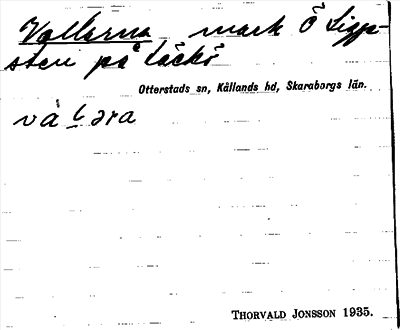 Vallarna, mark Ö Sigge-
sten på Läckö
Otterstads sn, Kållands hd, Skaraborgs län.
THORVALD JONSSON 1935.